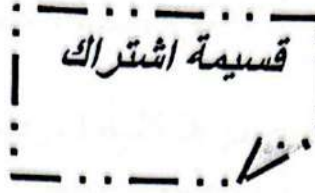 قسيمة اشتراك